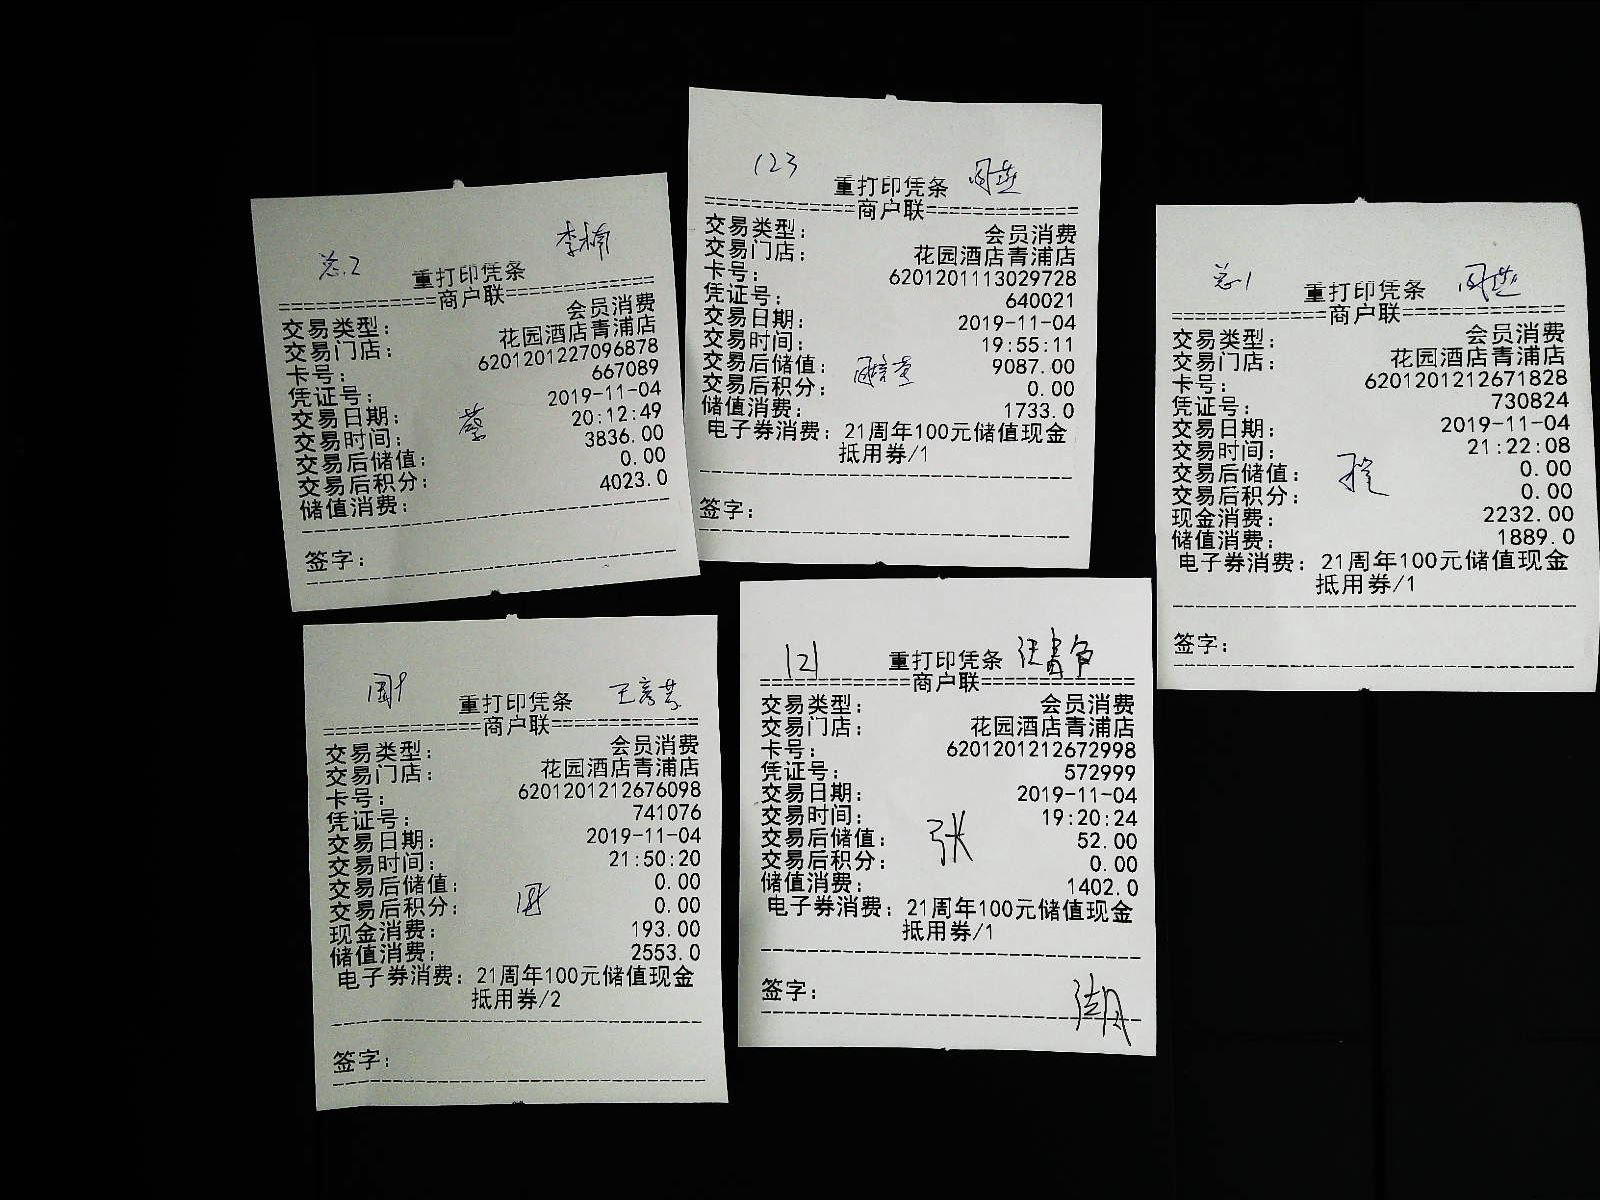 总.2 李楠
重打印凭条
============商户联============
交易类型: 会员消费
交易门店: 花园酒店青浦店
卡号: 6201201227096878
凭证号: 667089
交易日期: 2019-11-04
交易时间: 20:12:49
交易后储值: 3836.00
交易后积分: 0.00
储值消费: 4023.0
蔡
签字:
123
重打印凭条
============商户联============
交易类型: 会员消费
交易门店: 花园酒店青浦店
卡号: 6201201113029728
凭证号: 640021
交易日期: 2019-11-04
交易时间: 19:55:11
交易后储值: 9087.00
交易后积分: 0.00
储值消费: 1733.0
电子券消费: 21周年100元储值现金
抵用券/1
签字:
总.1
重打印凭条
============商户联============
交易类型: 会员消费
交易门店: 花园酒店青浦店
卡号: 6201201212671828
凭证号: 730824
交易日期: 2019-11-04
交易时间: 21:22:08
交易后储值: 0.00
交易后积分: 0.00
现金消费: 2232.00
储值消费: 1889.0
电子券消费: 21周年100元储值现金
抵用券/1
签字:
重打印凭条
============商户联============
交易类型: 会员消费
交易门店: 花园酒店青浦店
卡号: 6201201212676098
凭证号: 741076
交易日期: 2019-11-04
交易时间: 21:50:20
交易后储值: 0.00
交易后积分: 0.00
现金消费: 193.00
储值消费: 2553.0
电子券消费: 21周年100元储值现金
抵用券/2
签字:
121
重打印凭条
============商户联============
交易类型: 会员消费
交易门店: 花园酒店青浦店
卡号: 6201201212672998
凭证号: 572999
交易日期: 2019-11-04
交易时间: 19:20:24
交易后储值: 52.00
交易后积分: 0.00
储值消费: 1402.0
张
电子券消费: 21周年100元储值现金
抵用券/1
签字: